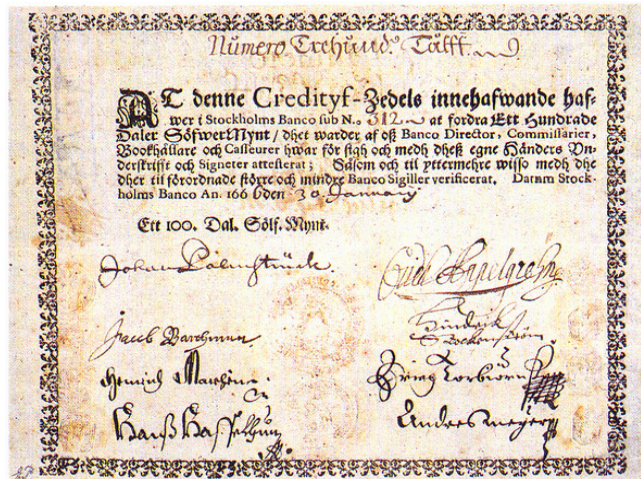 Numero Trehund: Tålfft.
AT denne Credityf-Zedels innehafwande haf-
wer i Stockholms Banco sub N.o 312. at fordra Ett Hundrade
Daler SölfwerMynt / dhet warder af oß Banco Director, Commissarier,
Bookhållare och Casseurer hwar för sigh och medh dheß egne Händers Vn-
derskrifft och Signeter attesterat; Såsom och til yttermehre wisso medh dhe
dher til förordnade större och mindre Banco Sigiller verificerat. Datum Stock-
holms Banco An. 1666 den 30 January
Ett 100. Dal. Sölf. Mynt.
Johan Palmstruch.
Jacob Barchman
Hendrik
Hans
Anders